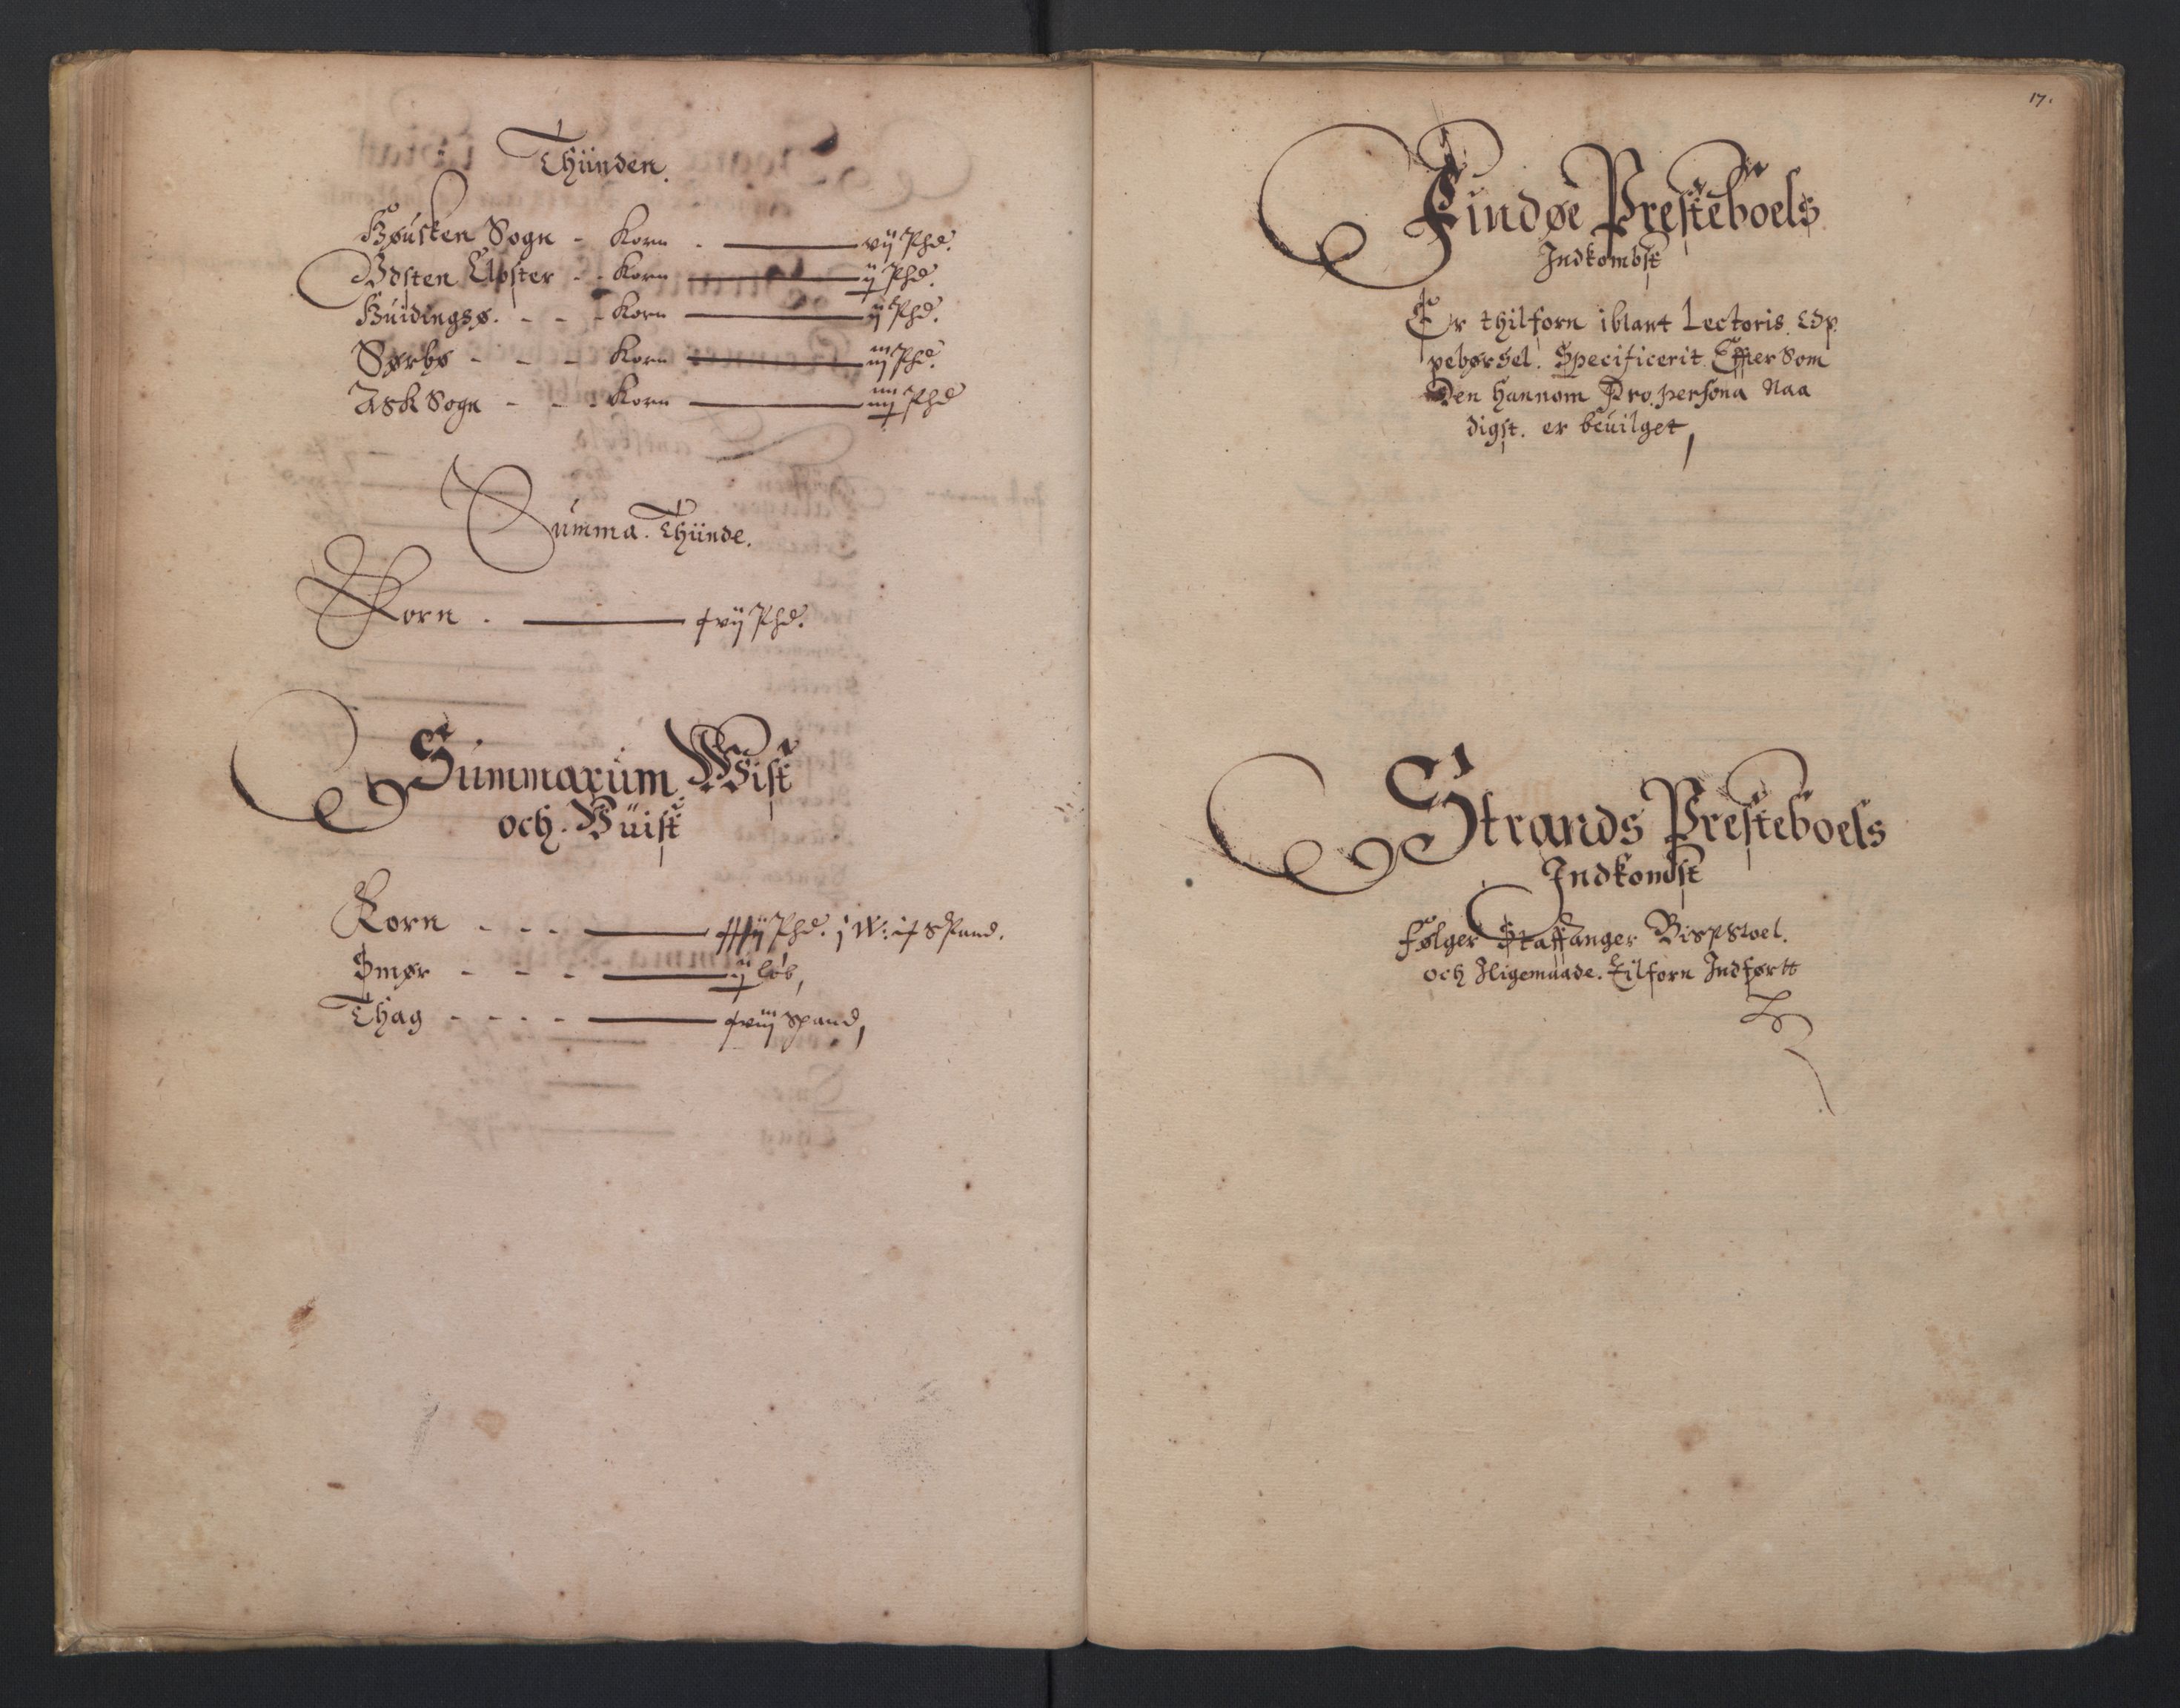 Thiinden.
Sogn - Korn - vij Phd.
Closter - - Korn ij Phd.
Huidingsø. - - - Korn ij Phd.
Sørbø - - - Korn iij Phd.
Ask Sogn - - - Korn iiij Phd
Summa. Thiinde.
Korn. xvij Phd.
Summarum. Wist
och. Vüist
Korn - - - Phd. j W: ix Spand.
Smør - - - - ij løb,
Thag - - - - xviij Spand,
17.
Findøe Presteboels
Indkombst
Er thilforn iblant Lectoris. Op
pebørsel. Specificerit Effter Som
Den hannom Pro. persona Naa
digst. er beuilget,
Strands Presteboels
Indkomst
Følger Staffanger Bispstoel.
och Iligemaade. tilforn Indførtt